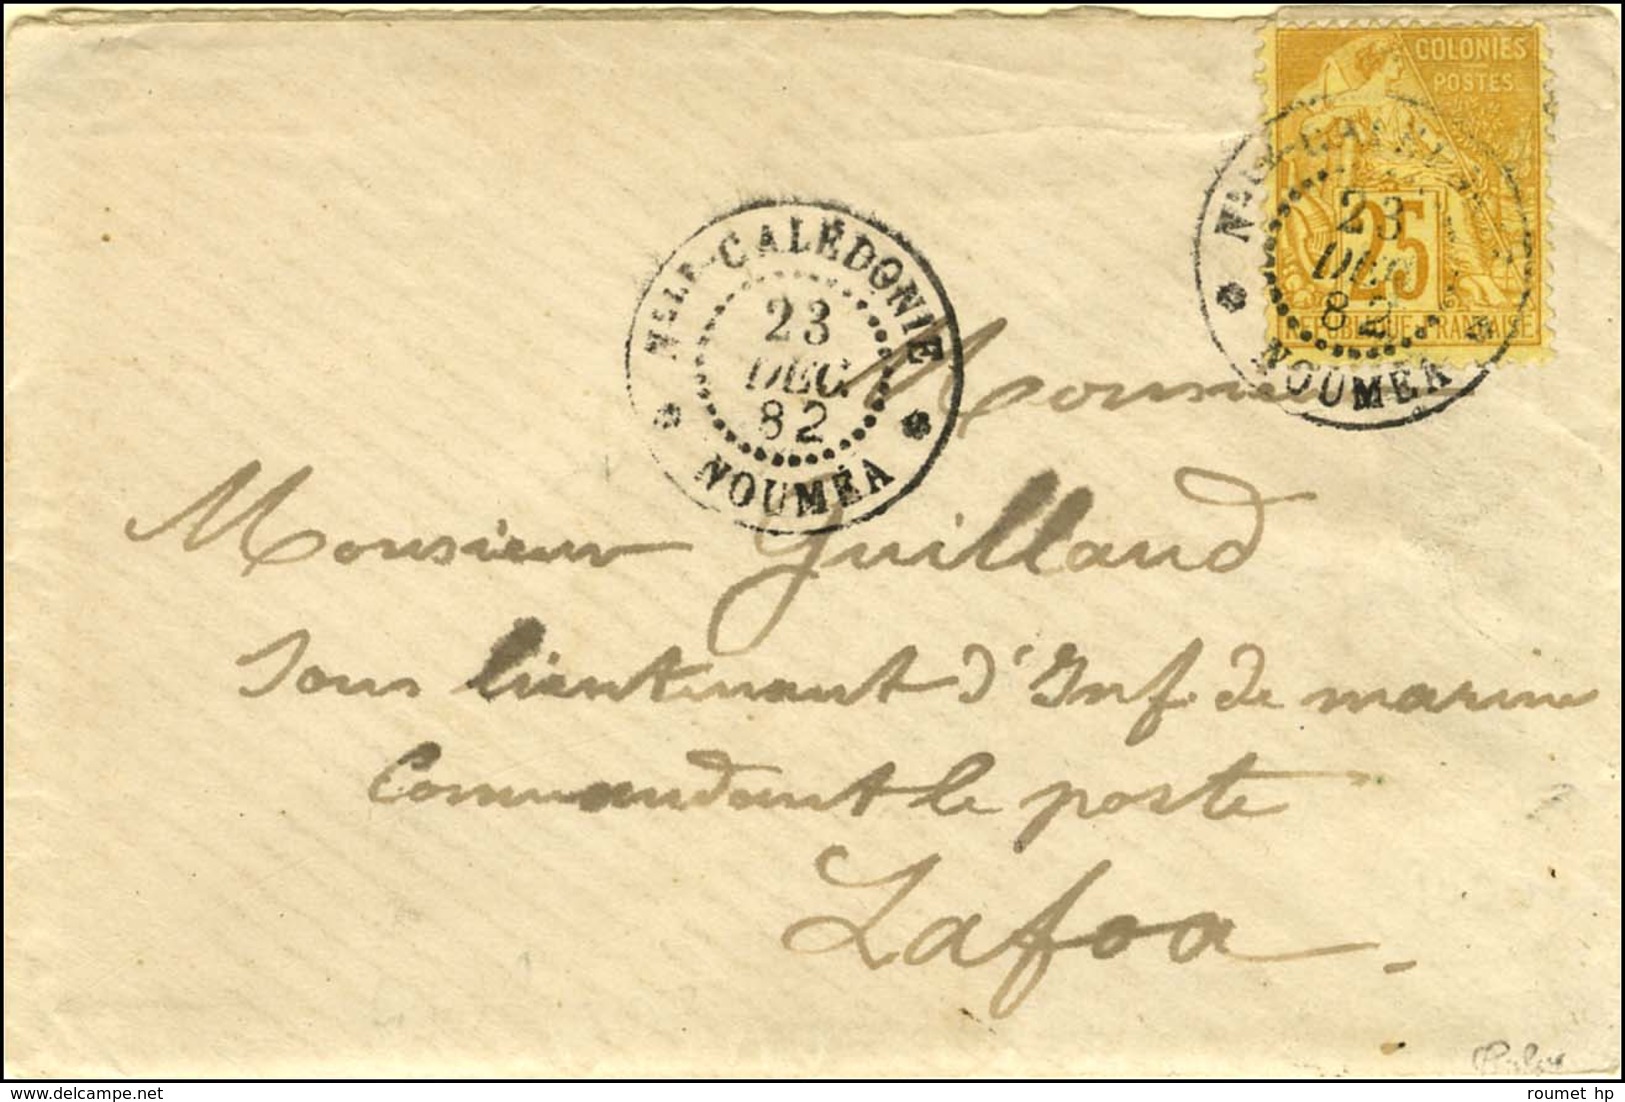 COLONIES
POSTES
25
RÉPUBLIQUE FRANÇAISE
Nlle CALÉDONIE
23
DEC
82
NOUMÉA
Nlle-CALÉDONIE
23
DEC.
82
NOUMÉA
Monsieur
Monsieur Guilland
Sous lientenant d'Inf. de marine
Commandant le poste
Lafoa -
roumet hp